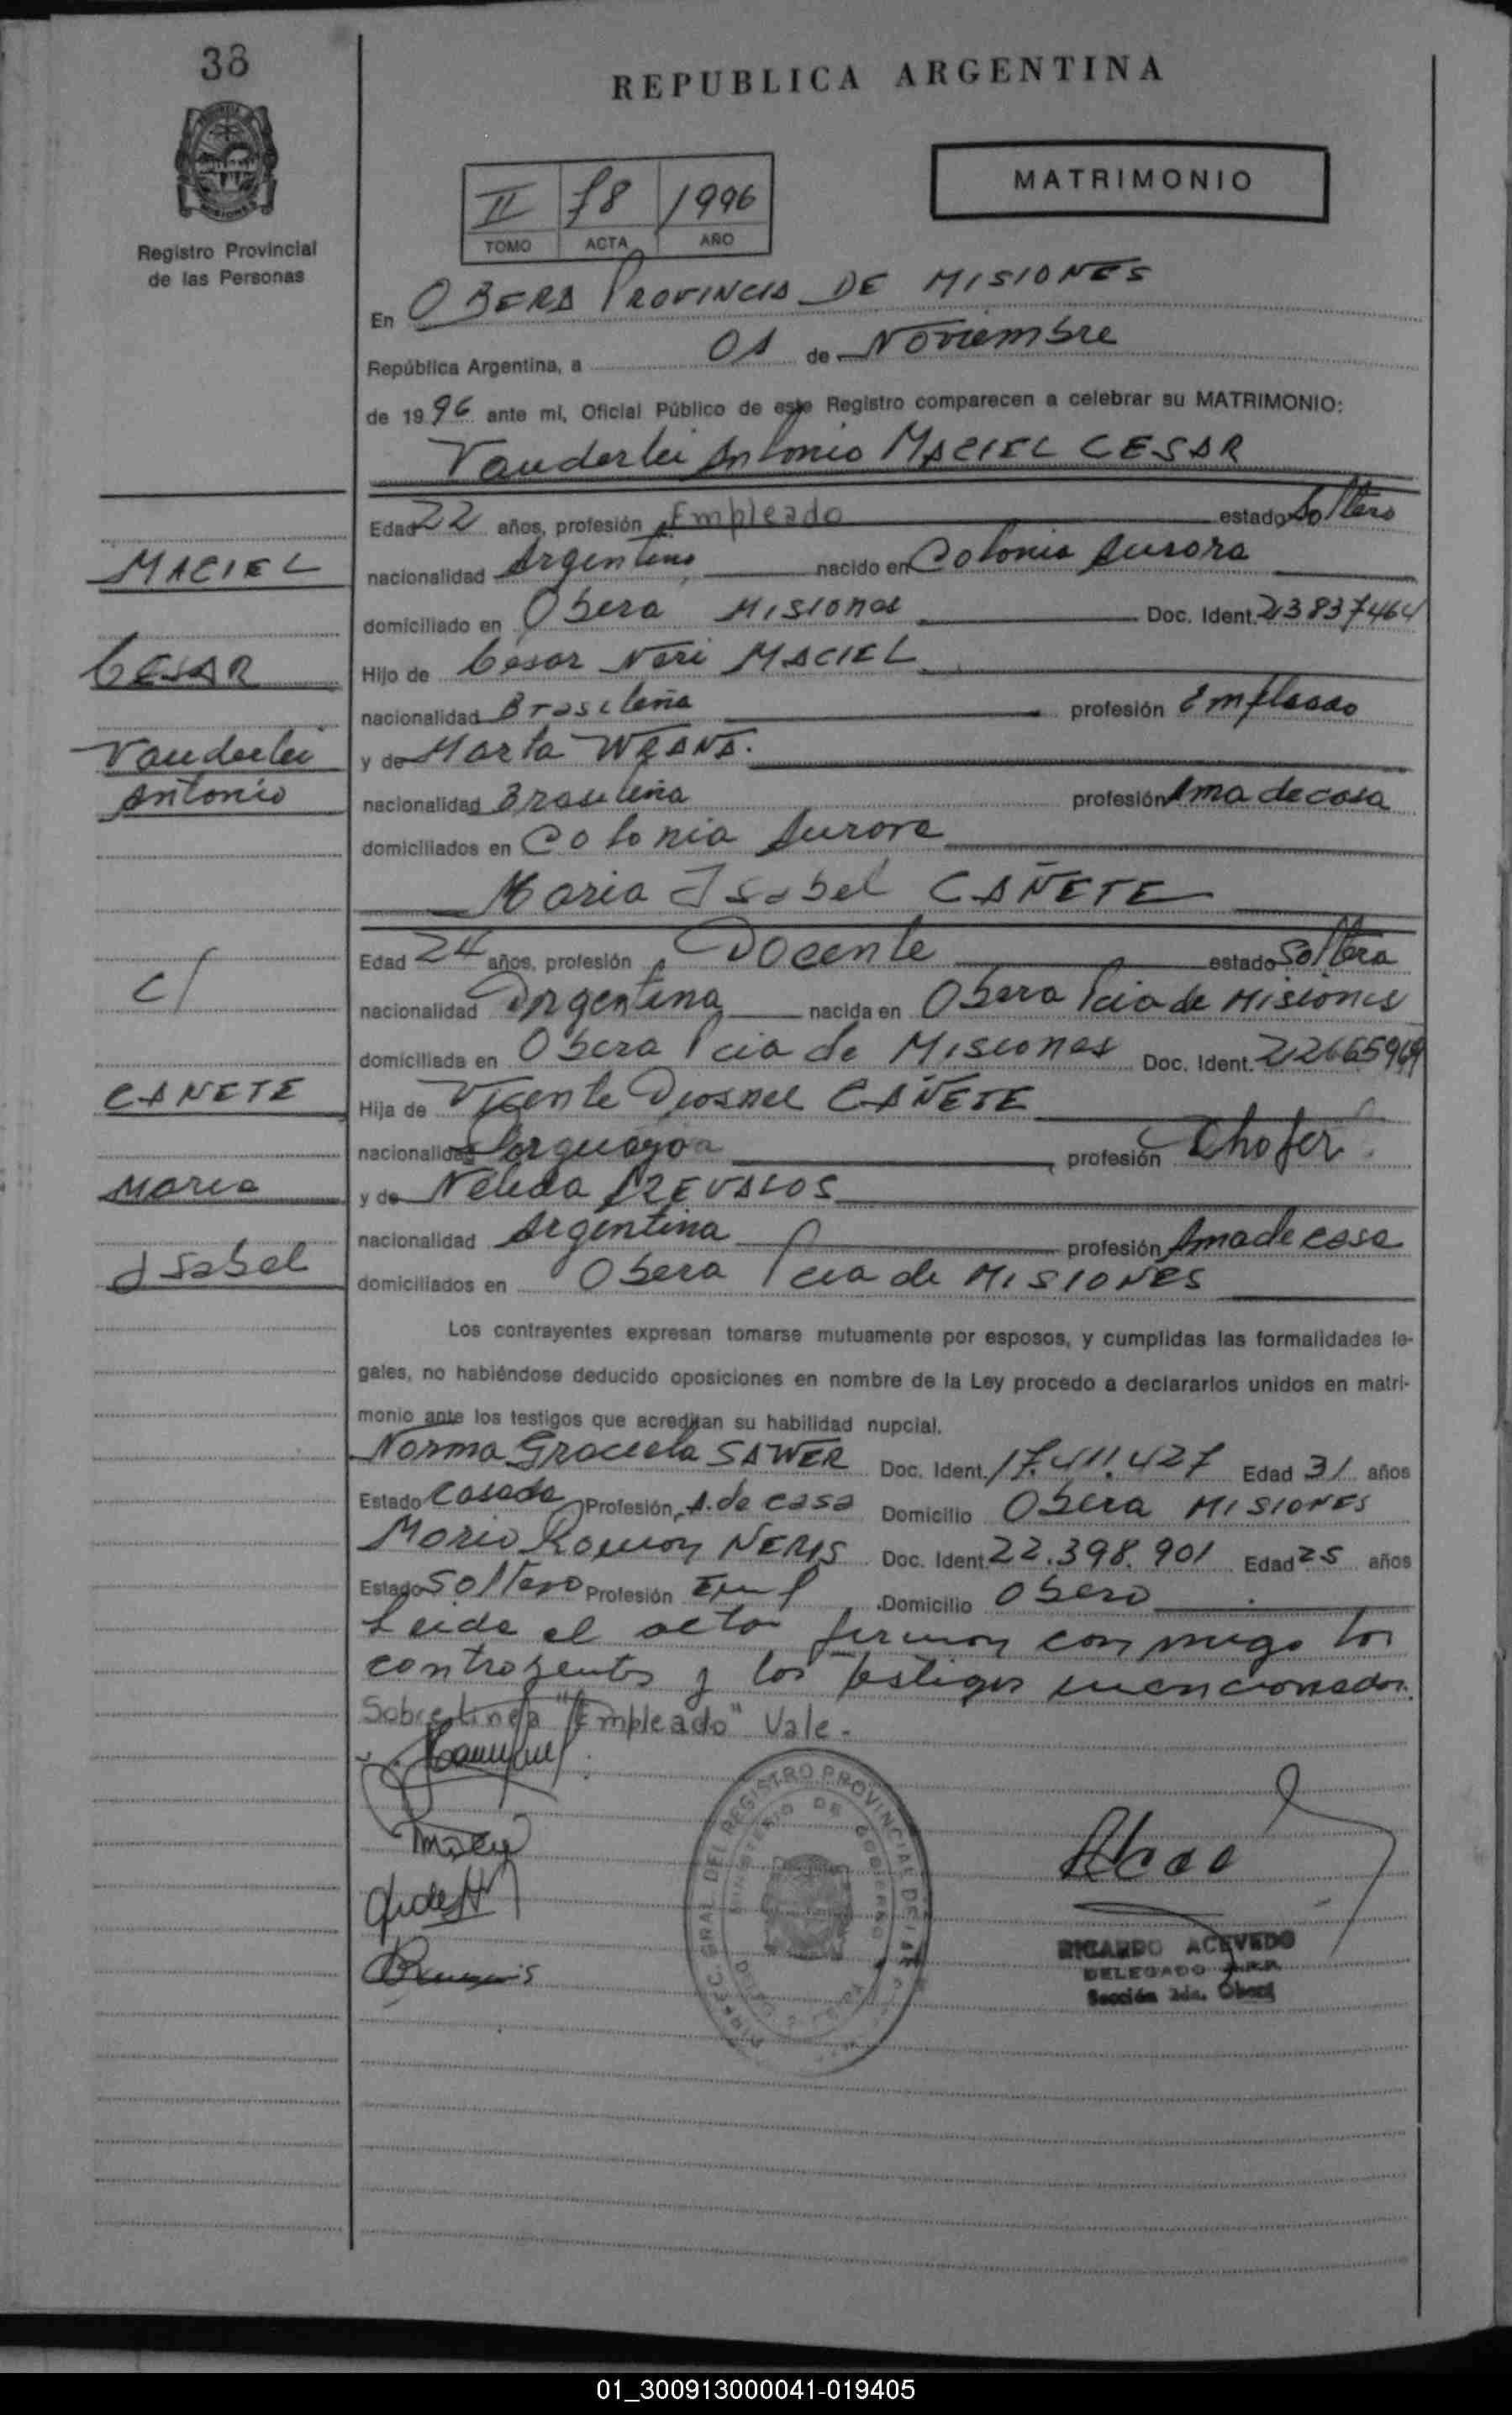 38
REPUBLICA ARGENTINA
MATRIMONIO
II 78 1996
TOMO ACTA AÑO
Registro Provincial
de las Personas
En OBERA PROVINCIA DE MISIONES
República Argentina, a 01 de Noviembre
de 1996 ante mí, Oficial Público de este Registro comparecen a celebrar su MATRIMONIO:
Vanderlei Antonio MACIEL CESAR
Edad 22 años, profesión Empleado estado Soltero
MACIEL
nacionalidad Argentino nacido en Colonia Aurora
domiciliado en Obera Misiones Doc. Ident. 23837464
CESAR
Hijo de Cesar Neri MACIEL
nacionalidad Brasileña profesión Empleado
Vanderlei
y de Marta
Antonio
nacionalidad Brasileña profesión Ama de casa
domiciliados en Colonia Aurora
Maria Isabel CAÑETE
Edad 24 años, profesión Docente estado Soltera
c/
nacionalidad Argentina nacida en Obera Pcia de Misiones
domiciliada en Obera Pcia de Misiones Doc. Ident.
CAÑETE
Hija de Vicente Diosnel CAÑETE
nacionalidad Paraguaya profesión Chofer
Maria
y de Nelida AREVALOS
nacionalidad Argentina profesión Ama de casa
Isabel
domiciliados en Obera Pcia de MISIONES
Los contrayentes expresan tomarse mutuamente por esposos, y cumplidas las formalidades le-
gales, no habiéndose deducido oposiciones en nombre de la Ley procedo a declararlos unidos en matri-
monio ante los testigos que acreditan su habilidad nupcial.
Norma Graciela SAWER Doc. Ident. 17.411.427 Edad 31 años
Estado Casada Profesión A. de casa Domicilio Obera MISIONES
Mario Ramon NERIS Doc. Ident. 22.398.901 Edad 25 años
Estado Soltero Profesión Empl Domicilio Obera
Leida el acta firman conmigo los
contrayentes y los testigos mencionados.
Sobre linea "Empleado" Vale.-
DIREC. GRAL. DEL REGISTRO PROVINCIAL DE LAS
MINISTERIO DE GOBIERNO
RICARDO ACEVEDO
DELEGADO
Sección 2da. Oberá
01_300913000041-019405